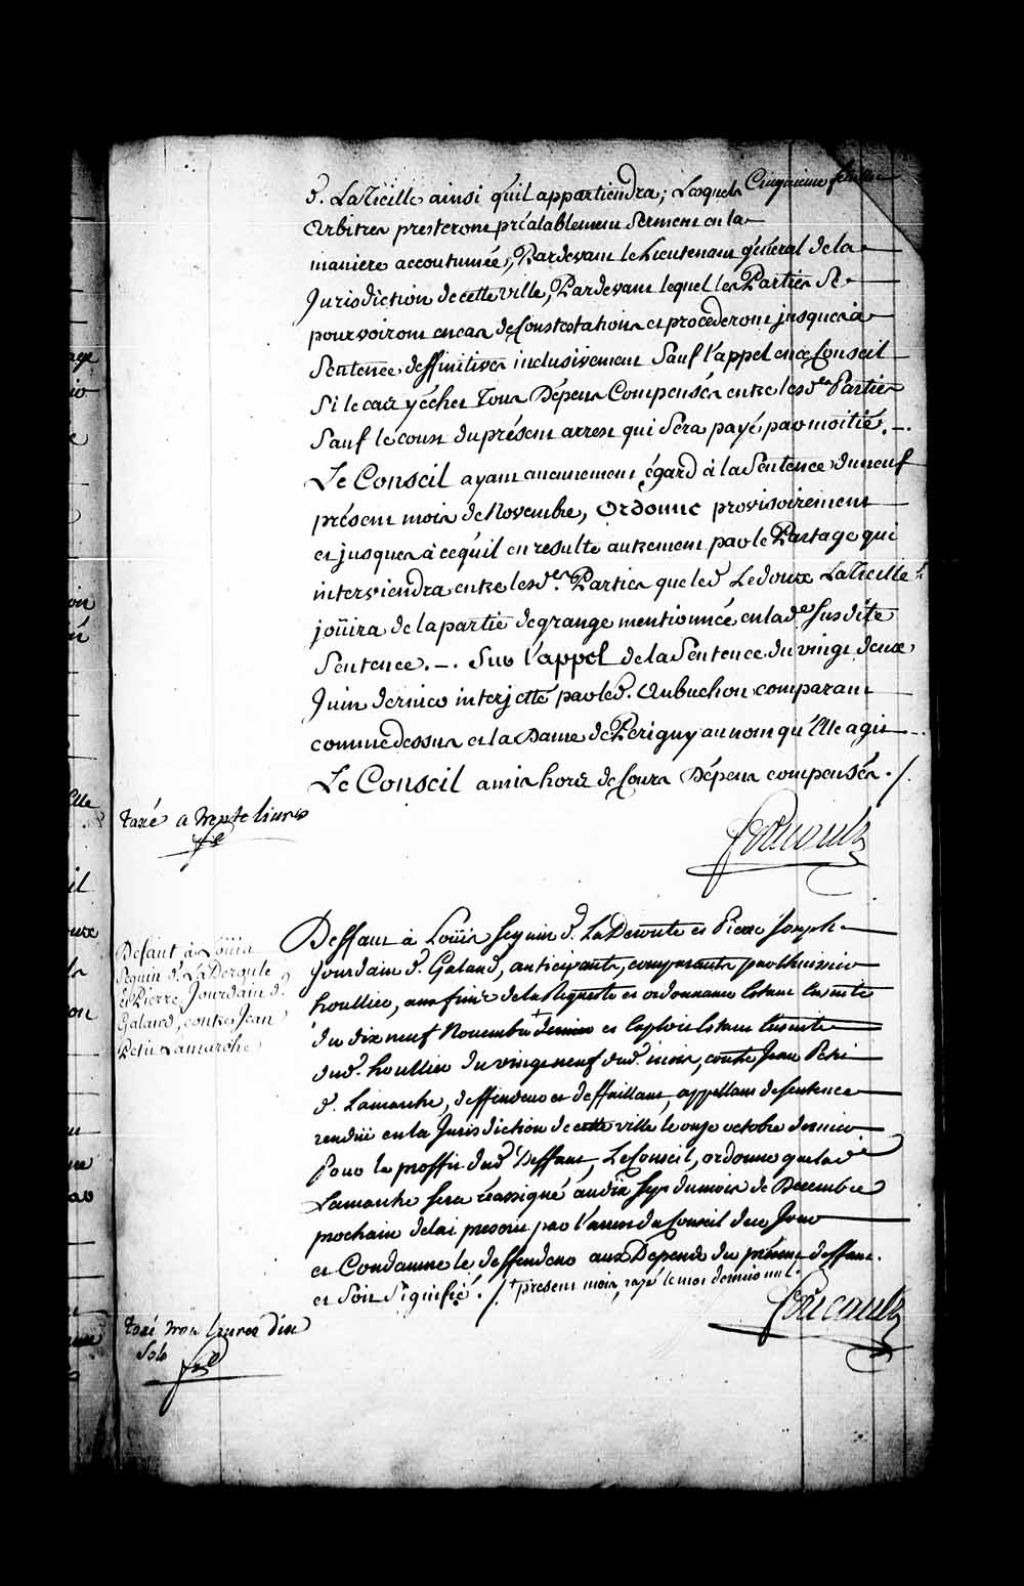 Cinquieme feuillet
d. LaVieille ainsi qu'il appartiendra; Lesquels
Arbitres presteront préalablement serment en la
maniere accoutumée, Pardevant le Lieutenant général de la
Jurisdiction de cette ville, Pardevant lequel les Parties se
pourvoiront en cas de Constestations et procederont jusques à
Sentence deffinitives inclusivement Sauf l'appel en ce Conseil
Si le cas y échet Tous Dépens Compensés entre lesd.es Parties
Sauf le coust du présent arrest qui Sera payé par moitié. —.
Le Conseil ayant aucunement égard à la Sentence du neuf
présent mois de Novembre, Ordonne provisoirement
et jusques à ce qu'il en resulte autrement par le Partage qui
interviendra entre lesd.es Parties que led Ledoux LaVieille
joüira de la partie de grange mentionnée en lad.e Susdite
Sentence. —. Sur l'appel de la Sentence du vingt deux
Juin dernier interjetté par led. Aubuchon comparant
comme dessus et la Dame de Perigny au nom qu'Elle agit —.
Le Conseil a mis hors de Cours Dépens compensés. /.
taxé a trente livres
Foucault
Défaut à Loüis
Seguin d. LaDeroute
et Pierre Jourdain d.
Galand, contre Jean
Petit Lamarche
Deffaut à Loüis Seguin d. LaDeroute et Pierre Joseph
Jourdain d. Galand, anticipants, comparants par l'huissier
houllier, aux fins de la Requeste et ordonnance Estant Ensuite
du dix neuf Novembre + dernier et Exploit Estant Ensuite
dud. houllier du vingt neuf dud. mois, contre Jean Petit
d. Lamarche, deffendeur et deffaillant, appellant de sentence
rendüe en la Jurisdiction de cette ville le onze octobre dernier
Pour le proffit dud Deffaut, Le Conseil, ordonne que led
Lamarche sera réassigné au dix sept du mois de Decembre
prochain delai prescrit par l'arrest du Conseil de ce Jour
et Condamne le deffendeur aux Depens du présent deffaut.
et Soit Signifié. / + present mois, rayé le mot dernier nul.
Foucault
taxé trois livres dix
Sols